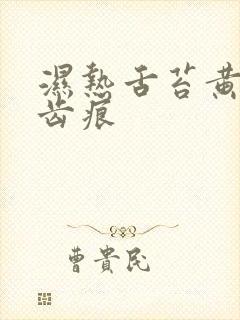 濕熱舌苔黃
齒痕
曹貴民